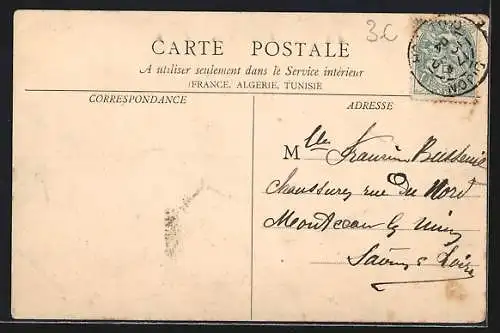 3.C
CARTE POSTALE
A utiliser seulement dans le Service intérieur
(FRANCE, ALGERIE, TUNISIE
CORRESPONDANCE
ADRESSE
Mlle
6
Chaussures rue du Nord
Montceau les Mines
Saône & Loire